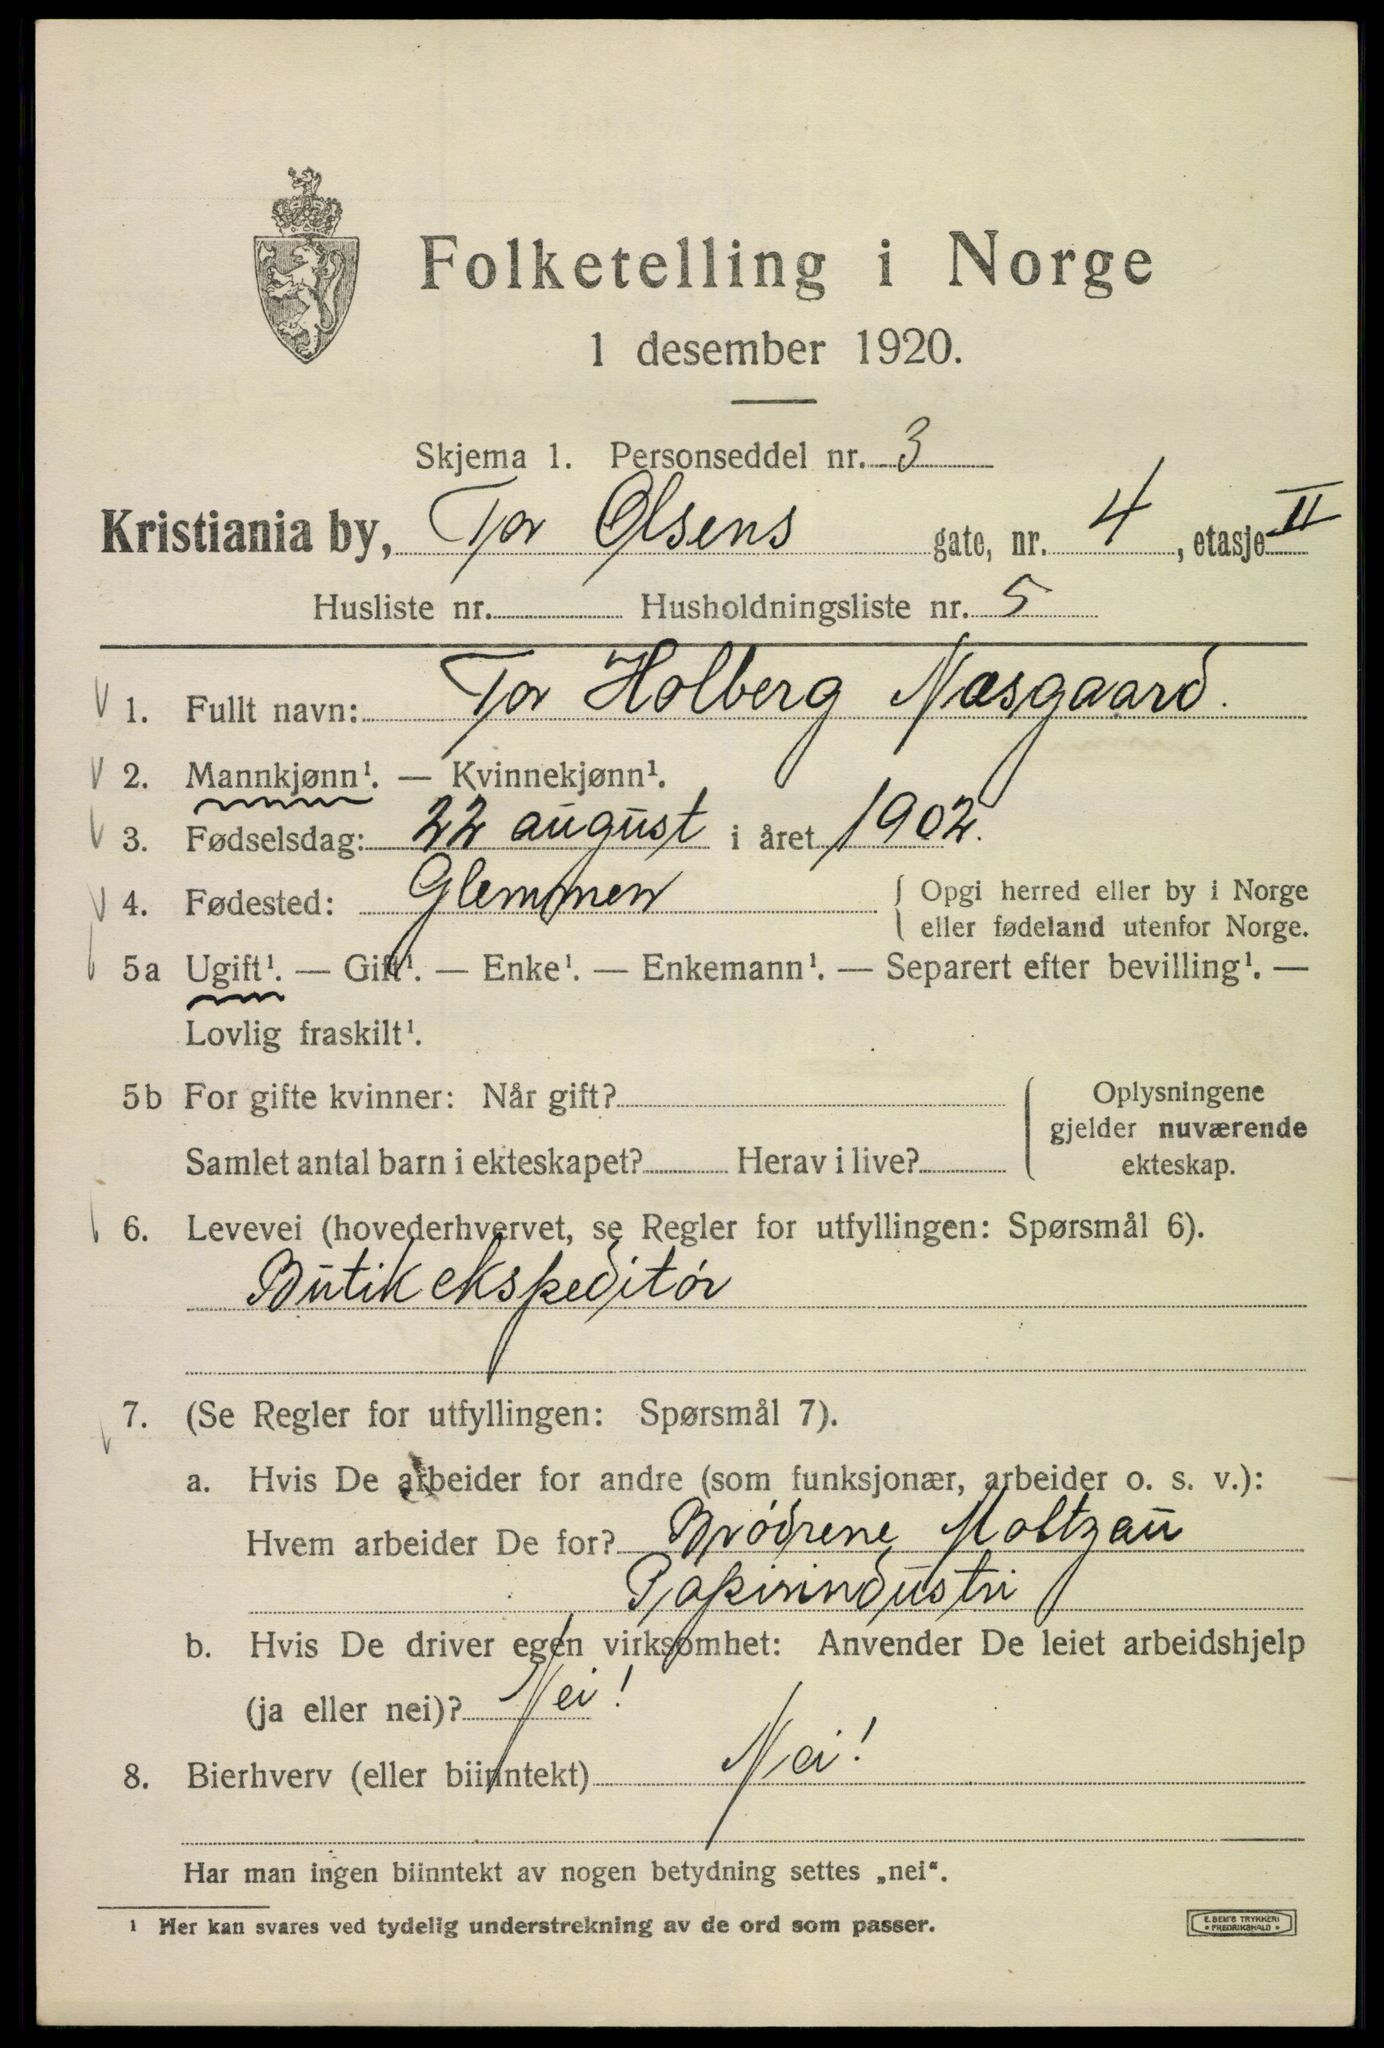 Folketelling i Norge
1 desember 1920.
Skjema 1. Personseddel nr. 3
Kristiania by, Tor Olsens gate, nr. 4, etasje II
Husliste nr. Husholdningsliste nr. 5
1. Fullt navn: Tor Holberg Næsgaard.
2. Mannkjønn¹. — Kvinnekjønn¹.
3. Fødselsdag: 22 august i året 1902.
4. Fødested: Glemmen { Opgi herred eller by i Norge
eller fødeland utenfor Norge.
5a Ugift¹. — Gift¹. — Enke¹. — Enkemann¹. — Separert efter bevilling¹. —
Lovlig fraskilt¹.
5b For gifte kvinner: Når gift? { Oplysningene
gjelder nuværende
Samlet antal barn i ekteskapet? Herav i live? ekteskap.
6. Levevei (hovederhvervet, se Regler for utfyllingen: Spørsmål 6).
Butikekspeditør
7. (Se Regler for utfyllingen: Spørsmål 7).
a. Hvis De arbeider for andre (som funksjonær, arbeider o. s. v.):
Hvem arbeider De for? Brødrene Moltzau
Papirindustri
b. Hvis De driver egen virksomhet: Anvender De leiet arbeidshjelp
(ja eller nei)? Nei!
8. Bierhverv (eller biinntekt) Nei!
Har man ingen biinntekt av nogen betydning settes „nei“.
¹ Her kan svares ved tydelig understrekning av de ord som passer.
E. SEM'S TRYKKERI
• FREDRIKSHALD •